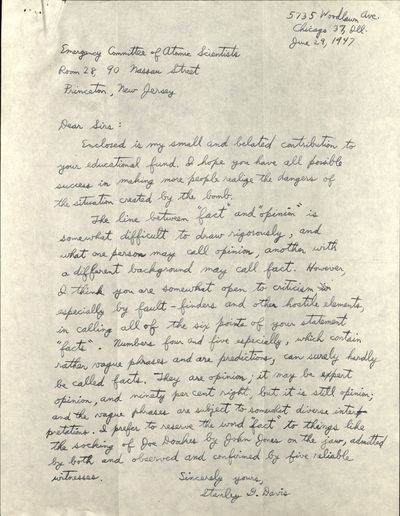 5735 Woodlawn Ave.
Chicago 37, Ill.
June 29, 1947
Emergency Committee of Atomic Scientists
Room 28, 90 Nassau Street
Princeton, New Jersey
Dear Sirs:
Enclosed is my small and belated contribution to
your educational fund. I hope you have all possible
success in making more people realize the dangers of
the situation created by the bomb.
The line between "fact" and "opinion" is
somewhat difficult to draw rigorously, and
what one person may call opinion, another with
a different background may call fact. However
I think you are somewhat open to criticism
especially by fault-finders and other hostile elements,
in calling all of the six points of your statement
"facts". Numbers four and five especially, which contain
rather vague phrases and are predictions, can surely hardly
be called facts. They are opinion; it may be expert
opinion, and ninety per cent right, but it is still opinion;
and the vague phrases are subject to somewhat diverse inter-
pretations. I prefer to reserve the word "fact" to things like
the socking of Joe Doakes by John Jones on the jaw, admitted
by both and observed and confirmed by five reliable
witnesses.
Sincerely yours,
Stanley D. Davis